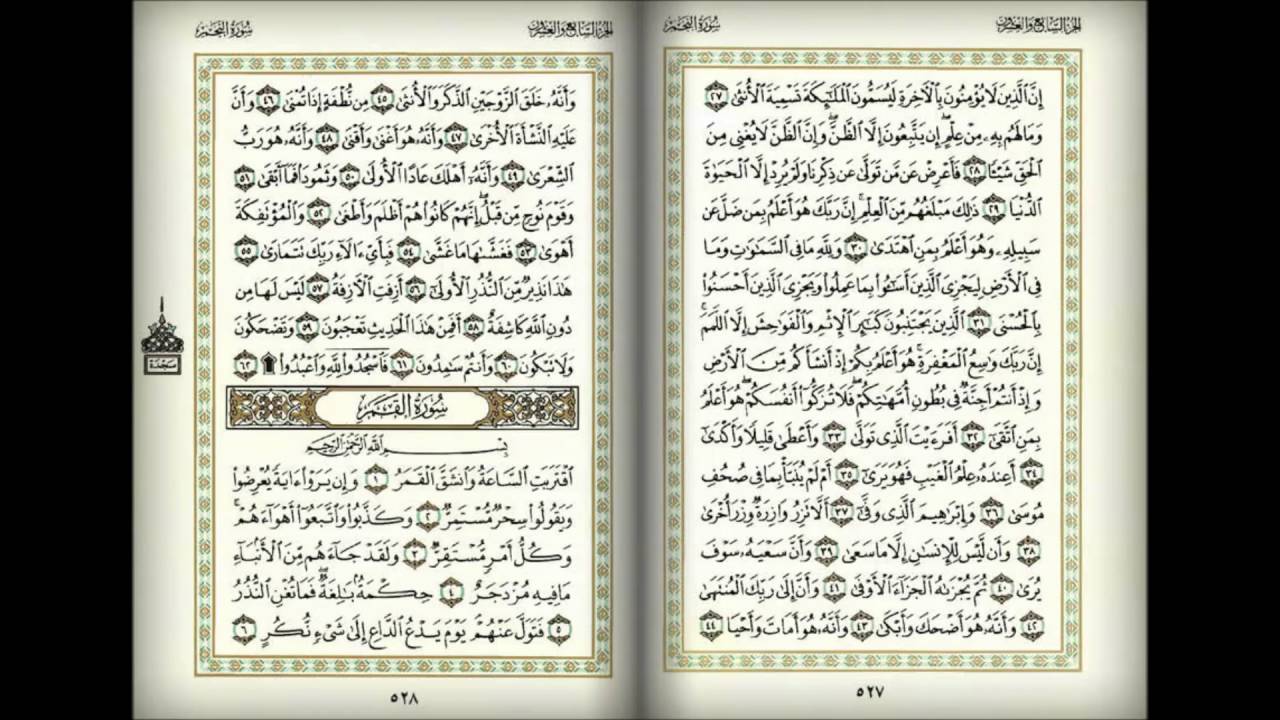 الجزء السابع والعشرون
سورة النجم
إِنَّ ٱلَّذِينَ لَا يُؤْمِنُونَ بِٱلْآخِرَةِ لَيُسَمُّونَ ٱلْمَلَـٰٓئِكَةَ تَسْمِيَةَ ٱلْأُنثَىٰ ٢٧
وَمَا لَهُم بِهِۦ مِنْ عِلْمٍ ۖ إِن يَتَّبِعُونَ إِلَّا ٱلظَّنَّ ۖ وَإِنَّ ٱلظَّنَّ لَا يُغْنِى مِنَ
ٱلْحَقِّ شَيْـًٔا ٢٨ فَأَعْرِضْ عَن مَّن تَوَلَّىٰ عَن ذِكْرِنَا وَلَمْ يُرِدْ إِلَّا ٱلْحَيَوٰةَ
ٱلدُّنْيَا ٢٩ ذَٰلِكَ مَبْلَغُهُم مِّنَ ٱلْعِلْمِ ۚ إِنَّ رَبَّكَ هُوَ أَعْلَمُ بِمَن ضَلَّ عَن
سَبِيلِهِۦ وَهُوَ أَعْلَمُ بِمَنِ ٱهْتَدَىٰ ٣٠ وَلِلَّهِ مَا فِى ٱلسَّمَـٰوَٰتِ وَمَا
فِى ٱلْأَرْضِ لِيَجْزِىَ ٱلَّذِينَ أَسَـٰٓـُٔوا۟ بِمَا عَمِلُوا۟ وَيَجْزِىَ ٱلَّذِينَ أَحْسَنُوا۟
بِٱلْحُسْنَى ٣١ ٱلَّذِينَ يَجْتَنِبُونَ كَبَـٰٓئِرَ ٱلْإِثْمِ وَٱلْفَوَٰحِشَ إِلَّا ٱللَّمَمَ ۚ
إِنَّ رَبَّكَ وَٰسِعُ ٱلْمَغْفِرَةِ ۚ هُوَ أَعْلَمُ بِكُمْ إِذْ أَنشَأَكُم مِّنَ ٱلْأَرْضِ
وَإِذْ أَنتُمْ أَجِنَّةٌ فِى بُطُونِ أُمَّهَـٰتِكُمْ ۖ فَلَا تُزَكُّوٓا۟ أَنفُسَكُمْ ۖ هُوَ أَعْلَمُ
بِمَنِ ٱتَّقَىٰٓ ٣٢ أَفَرَءَيْتَ ٱلَّذِى تَوَلَّىٰ ٣٣ وَأَعْطَىٰ قَلِيلًا وَأَكْدَىٰٓ
٣٤ أَعِندَهُۥ عِلْمُ ٱلْغَيْبِ فَهُوَ يَرَىٰٓ ٣٥ أَمْ لَمْ يُنَبَّأْ بِمَا فِى صُحُفِ
مُوسَىٰ ٣٦ وَإِبْرَٰهِيمَ ٱلَّذِى وَفَّىٰٓ ٣٧ أَلَّا تَزِرُ وَازِرَةٌ وِزْرَ أُخْرَىٰ
٣٨ وَأَن لَّيْسَ لِلْإِنسَـٰنِ إِلَّا مَا سَعَىٰ ٣٩ وَأَنَّ سَعْيَهُۥ سَوْفَ
يُرَىٰ ٤٠ ثُمَّ يُجْزَىٰهُ ٱلْجَزَآءَ ٱلْأَوْفَىٰ ٤١ وَأَنَّ إِلَىٰ رَبِّكَ ٱلْمُنتَهَىٰ
٤٢ وَأَنَّهُۥ هُوَ أَضْحَكَ وَأَبْكَىٰ ٤٣ وَأَنَّهُۥ هُوَ أَمَاتَ وَأَحْيَا ٤٤
٥٢٧
الجزء السابع والعشرون
سورة النجم
وَأَنَّهُۥ خَلَقَ ٱلزَّوْجَيْنِ ٱلذَّكَرَ وَٱلْأُنثَىٰ ٤٥ مِن نُّطْفَةٍ إِذَا تُمْنَىٰ ٤٦ وَأَنَّ
عَلَيْهِ ٱلنَّشْأَةَ ٱلْأُخْرَىٰ ٤٧ وَأَنَّهُۥ هُوَ أَغْنَىٰ وَأَقْنَىٰ ٤٨ وَأَنَّهُۥ هُوَ رَبُّ
ٱلشِّعْرَىٰ ٤٩ وَأَنَّهُۥٓ أَهْلَكَ عَادًا ٱلْأُولَىٰ ٥٠ وَثَمُودَا۟ فَمَآ أَبْقَىٰ ٥١
وَقَوْمَ نُوحٍ مِّن قَبْلُ ۖ إِنَّهُمْ كَانُوا۟ هُمْ أَظْلَمَ وَأَطْغَىٰ ٥٢ وَٱلْمُؤْتَفِكَةَ
أَهْوَىٰ ٥٣ فَغَشَّىٰهَا مَا غَشَّىٰ ٥٤ فَبِأَىِّ ءَالَآءِ رَبِّكَ تَتَمَارَىٰ ٥٥
هَـٰذَا نَذِيرٌ مِّنَ ٱلنُّذُرِ ٱلْأُولَىٰٓ ٥٦ أَزِفَتِ ٱلْآزِفَةُ ٥٧ لَيْسَ لَهَا مِن
دُونِ ٱللَّهِ كَاشِفَةٌ ٥٨ أَفَمِنْ هَـٰذَا ٱلْحَدِيثِ تَعْجَبُونَ ٥٩ وَتَضْحَكُونَ
وَلَا تَبْكُونَ ٦٠ وَأَنتُمْ سَـٰمِدُونَ ٦١ فَٱسْجُدُوا۟ لِلَّهِ وَٱعْبُدُوا۟ ۩ ٦٢
سجدة
سُورَةُ الْقَمَرِ
بِسْمِ ٱللَّهِ ٱلرَّحْمَـٰنِ ٱلرَّحِيمِ
ٱقْتَرَبَتِ ٱلسَّاعَةُ وَٱنشَقَّ ٱلْقَمَرُ ١ وَإِن يَرَوْا۟ ءَايَةً يُعْرِضُوا۟
وَيَقُولُوا۟ سِحْرٌ مُّسْتَمِرٌّ ٢ وَكَذَّبُوا۟ وَٱتَّبَعُوٓا۟ أَهْوَآءَهُمْ ۚ
وَكُلُّ أَمْرٍ مُّسْتَقِرٌّ ٣ وَلَقَدْ جَآءَهُم مِّنَ ٱلْأَنۢبَآءِ
مَا فِيهِ مُزْدَجَرٌ ٤ حِكْمَةٌۢ بَـٰلِغَةٌ ۖ فَمَا تُغْنِ ٱلنُّذُرُ
٥ فَتَوَلَّ عَنْهُمْ ۘ يَوْمَ يَدْعُ ٱلدَّاعِ إِلَىٰ شَىْءٍ نُّكُرٍ ٦
٥٢٨